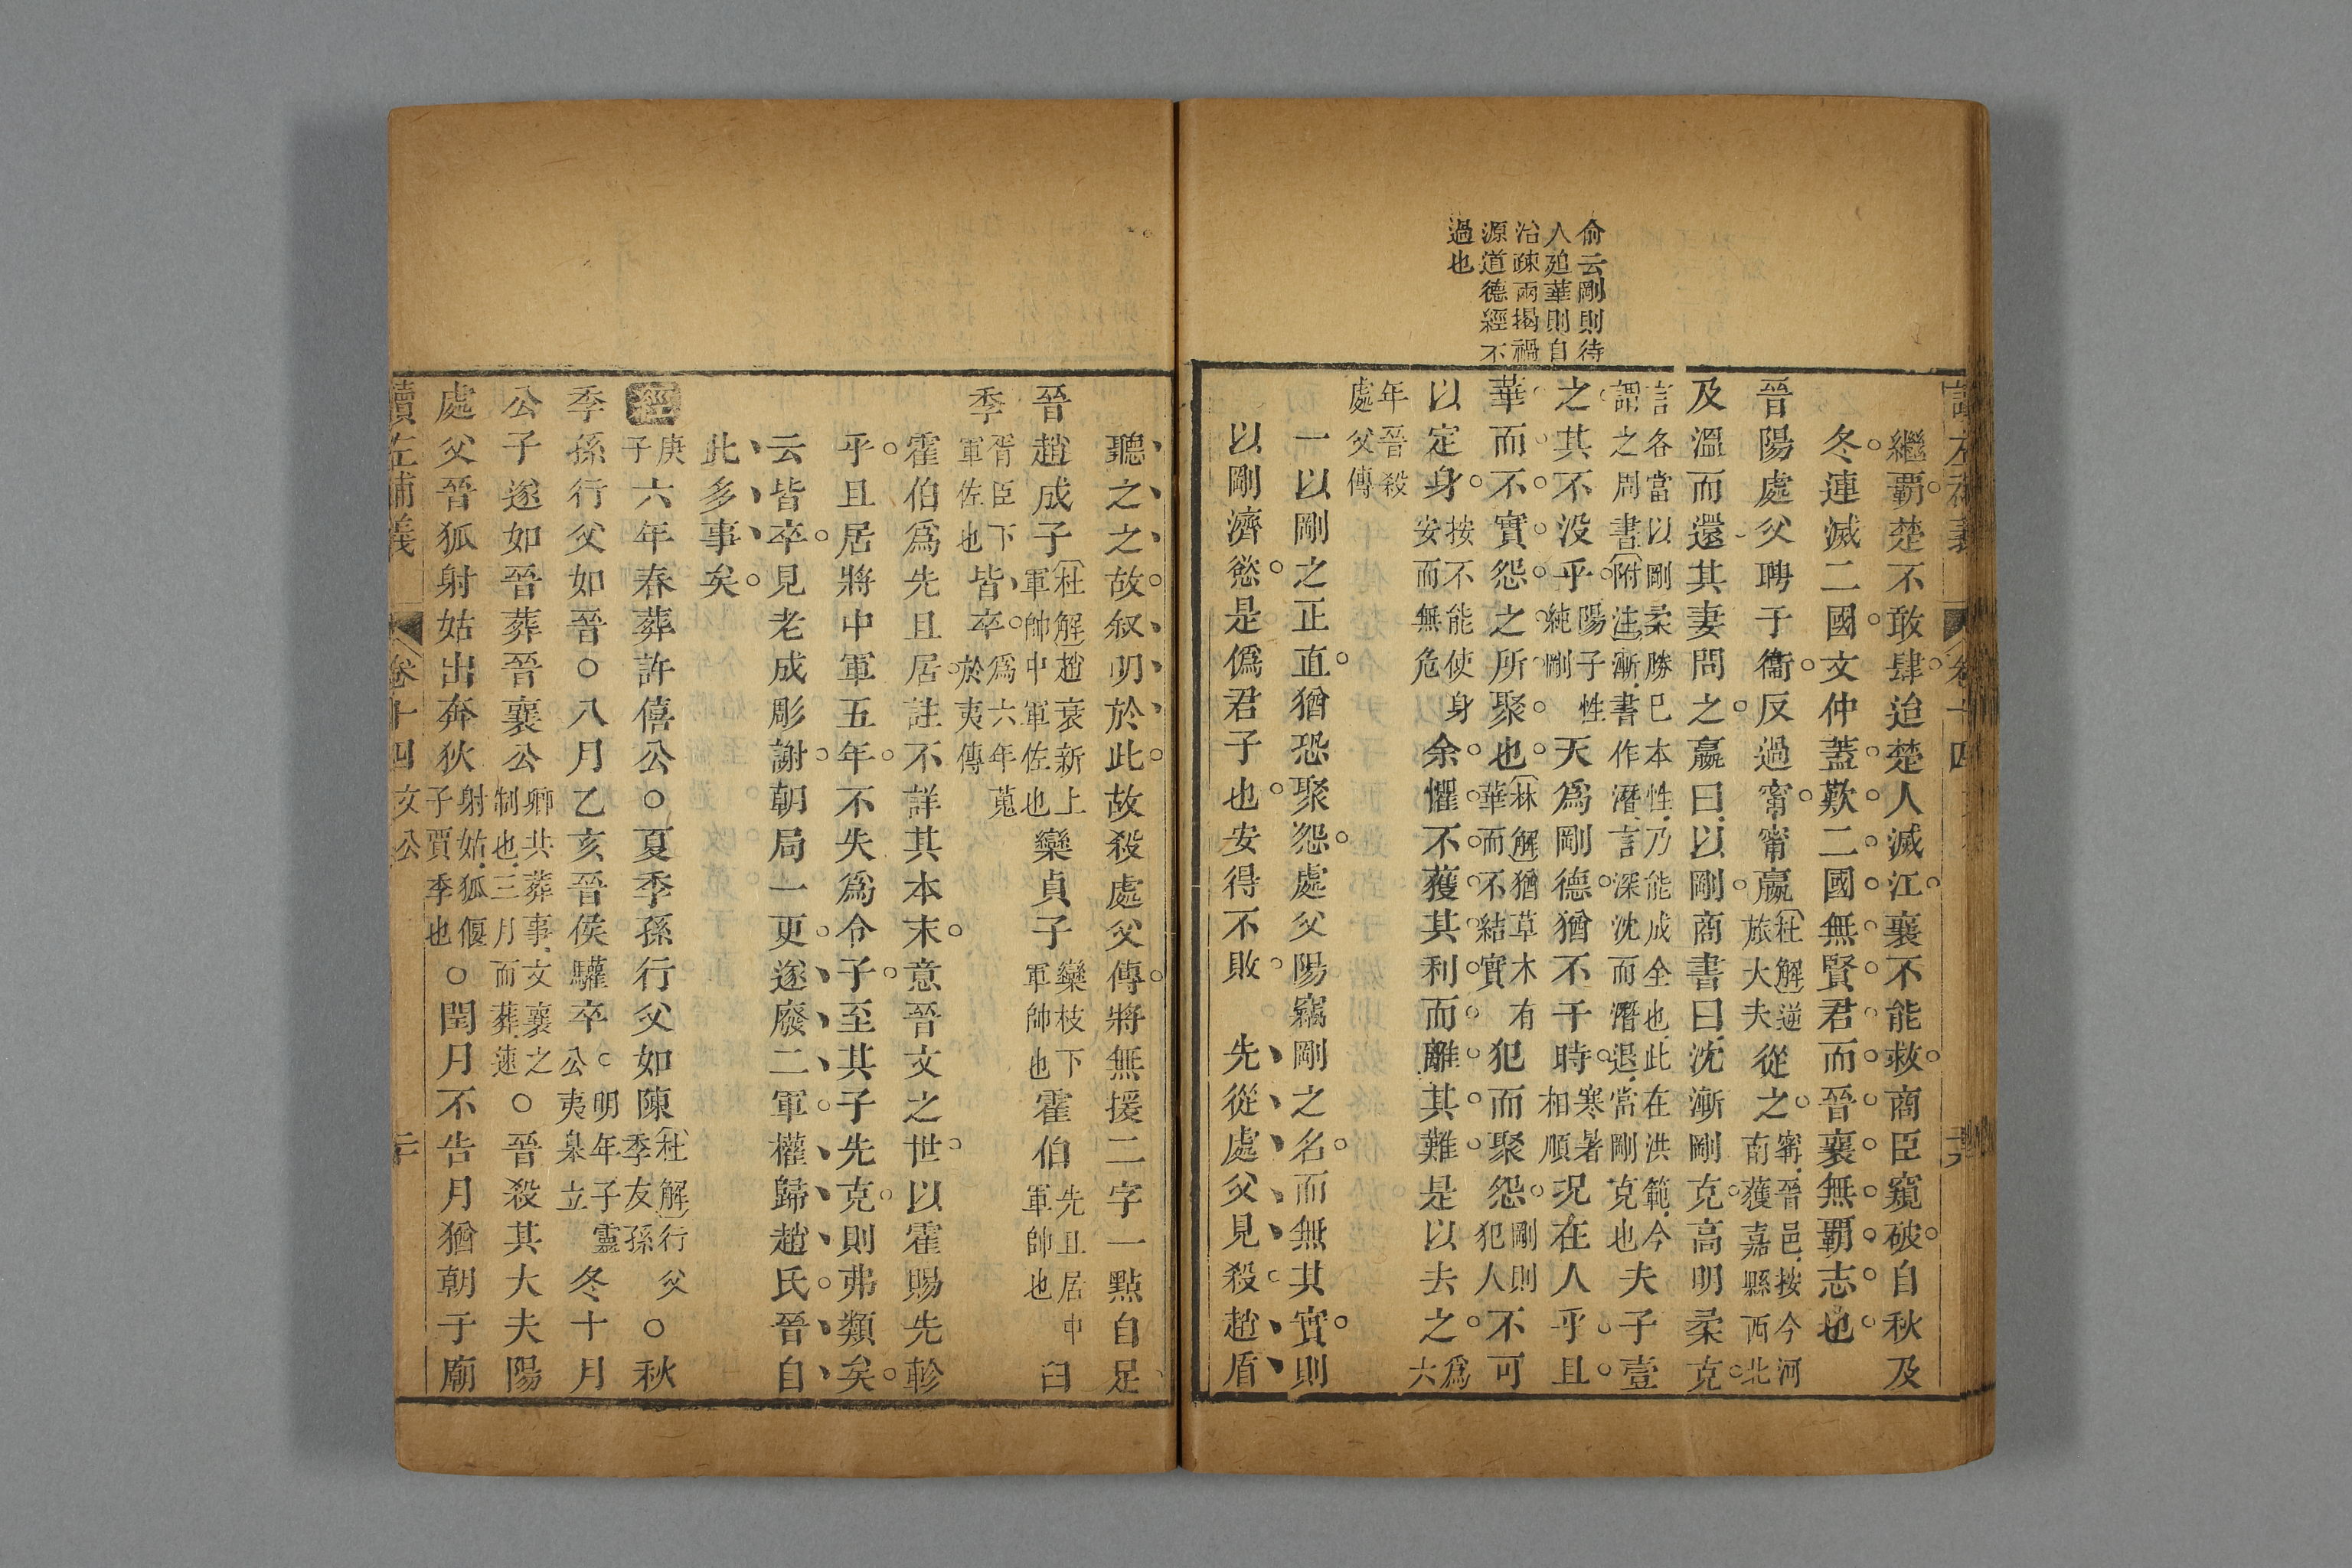 俞云剛則待
人廹華則自
治疎兩揭禍
源道德經不
過也
繼覇楚不敢肆迨楚人滅江襄不能救商臣窺破自秋及
冬連滅二國文仲蓋歎二國無賢君而晉襄無覇志也
晉陽處父聘于衞反過甯甯嬴〔杜解〕逆旅大夫從之甯晉邑按今河南獲嘉縣西北
及溫而還其妻問之嬴曰以剛商書曰沈漸剛克高明柔克
言各當以剛柔勝巳本性乃能成全也此在洪範今謂之周書〔附注〕漸書作潛言深沈而潛退當剛克也夫子壹
之其不没乎陽子性純剛天爲剛德猶不干時寒暑相順况在人乎且
華而不實怨之所聚也〔林解〕猶草木有華而不結實犯而聚怨剛則犯人不可
以定身按不能使身安而無危余懼不獲其利而離其難是以去之爲六
年晉殺處父傳
一以剛之正直猶恐聚怨處父陽竊剛之名而無其實則
以剛濟慾是僞君子也安得不敗　先從處父見殺趙盾
聽之之故叙明於此故殺處父傳將無援二字一點自足
晉趙成子〔杜解〕趙衰新上軍帥中軍佐也欒貞子欒枝下軍帥也霍伯先且居中軍帥也臼
季胥臣下軍佐也皆卒爲六年蒐於夷傳
霍伯爲先且居註不詳其本末意晉文之世以霍賜先軫
乎且居將中軍五年不失爲令子至其子先克則弗類矣
云皆卒見老成彫謝朝局一更遂廢二軍權歸趙氏晉自
此多事矣
經庚子六年春葬許僖公○夏季孫行父如陳〔杜解〕行父季友孫○秋
季孫行父如晉○八月乙亥晉侯驩卒○明年子靈公夷臯立冬十月
公子遂如晉葬晉襄公卿共葬事文襄之制也三月而葬速○晉殺其大夫陽
處父晉狐射姑出奔狄射姑狐偃子賈季也○閏月不告月猶朝于廟
讀左補義　卷十四　文公　二十